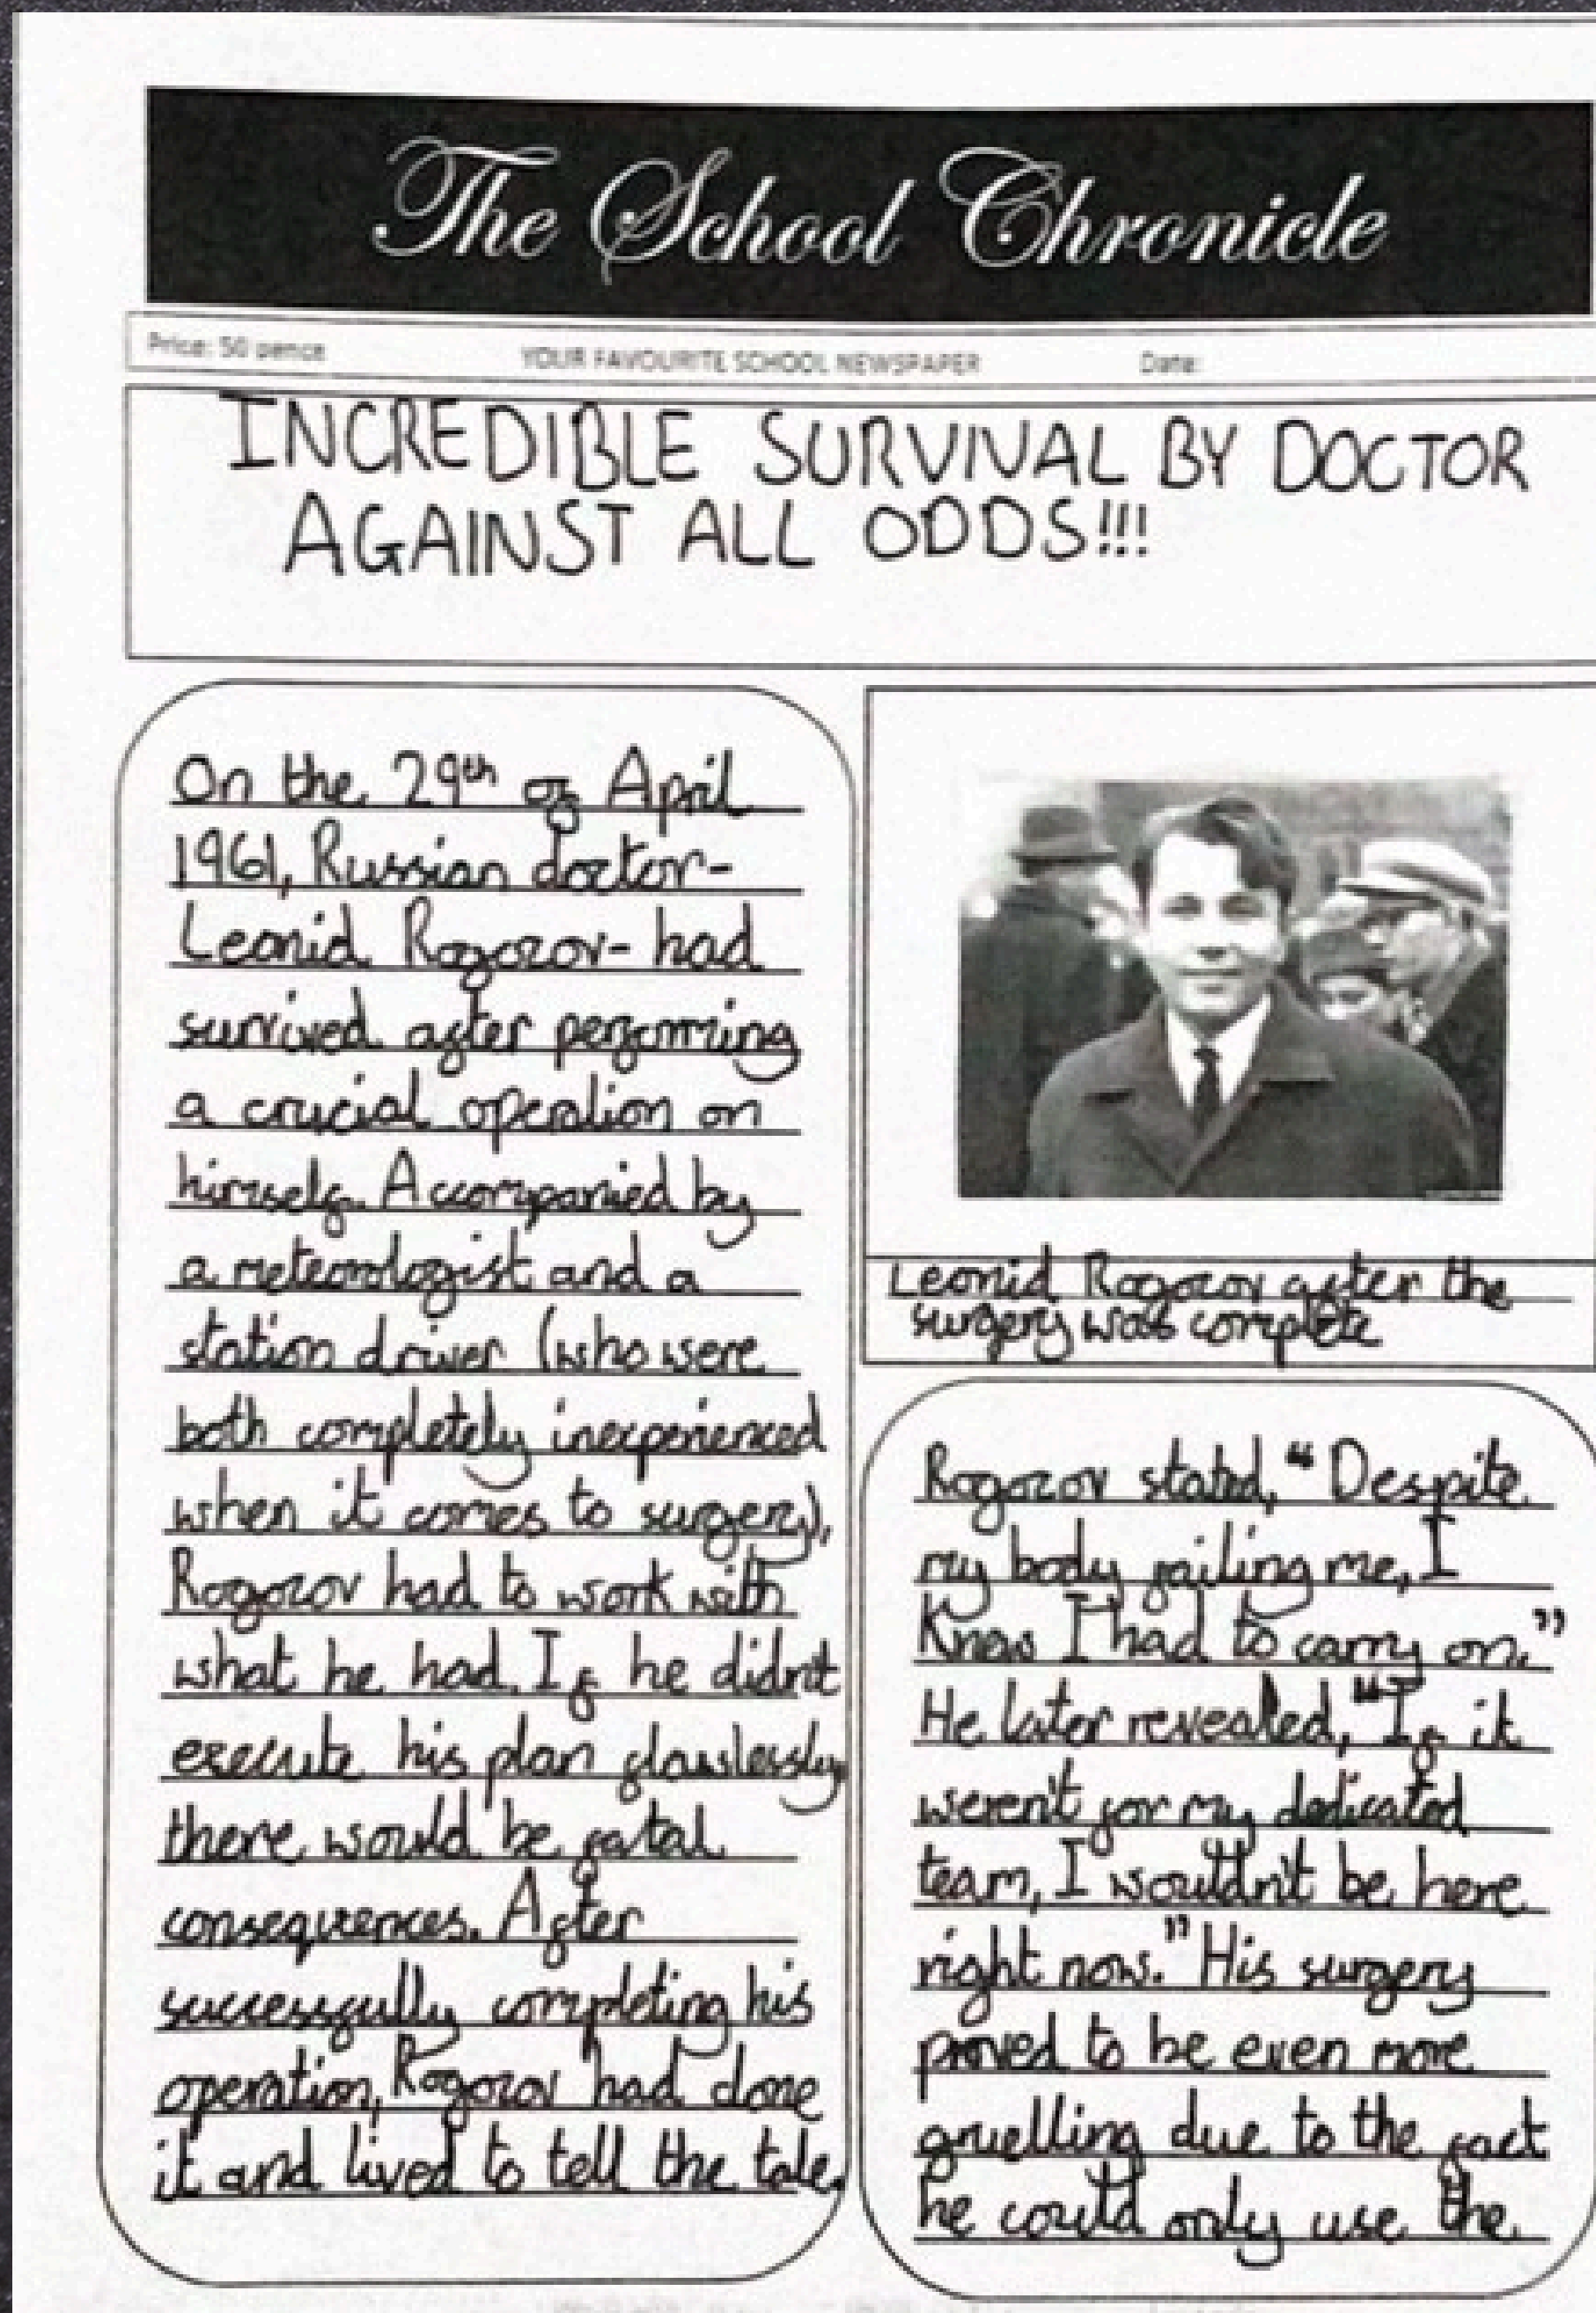 The School Chronicle
Price: 50 pence YOUR FAVOURITE SCHOOL NEWSPAPER Date:
INCREDIBLE SURVIVAL BY DOCTOR
AGAINST ALL ODDS!!!
On the 29th of April
1961, Russian doctor-
Leonid Rogozov- had
survived after performing
a crucial operation on
himself. Accompanied by
a meteorologist and a
station driver (who were
both completely inexperienced
when it comes to surgery),
Rogozov had to work with
what he had. If he didn't
execute his plan flawlessly
there would be fatal
consequences. After
successfully completing his
operation, Rogozov had done
it and lived to tell the tale.
Leonid Rogozov after the
surgery was complete
Rogozov stated, "Despite
my body failing me, I
Knew I had to carry on."
He later revealed, "If it
weren't for my dedicated
team, I wouldn't be here
right now." His surgery
proved to be even more
gruelling due to the fact
he could only use the